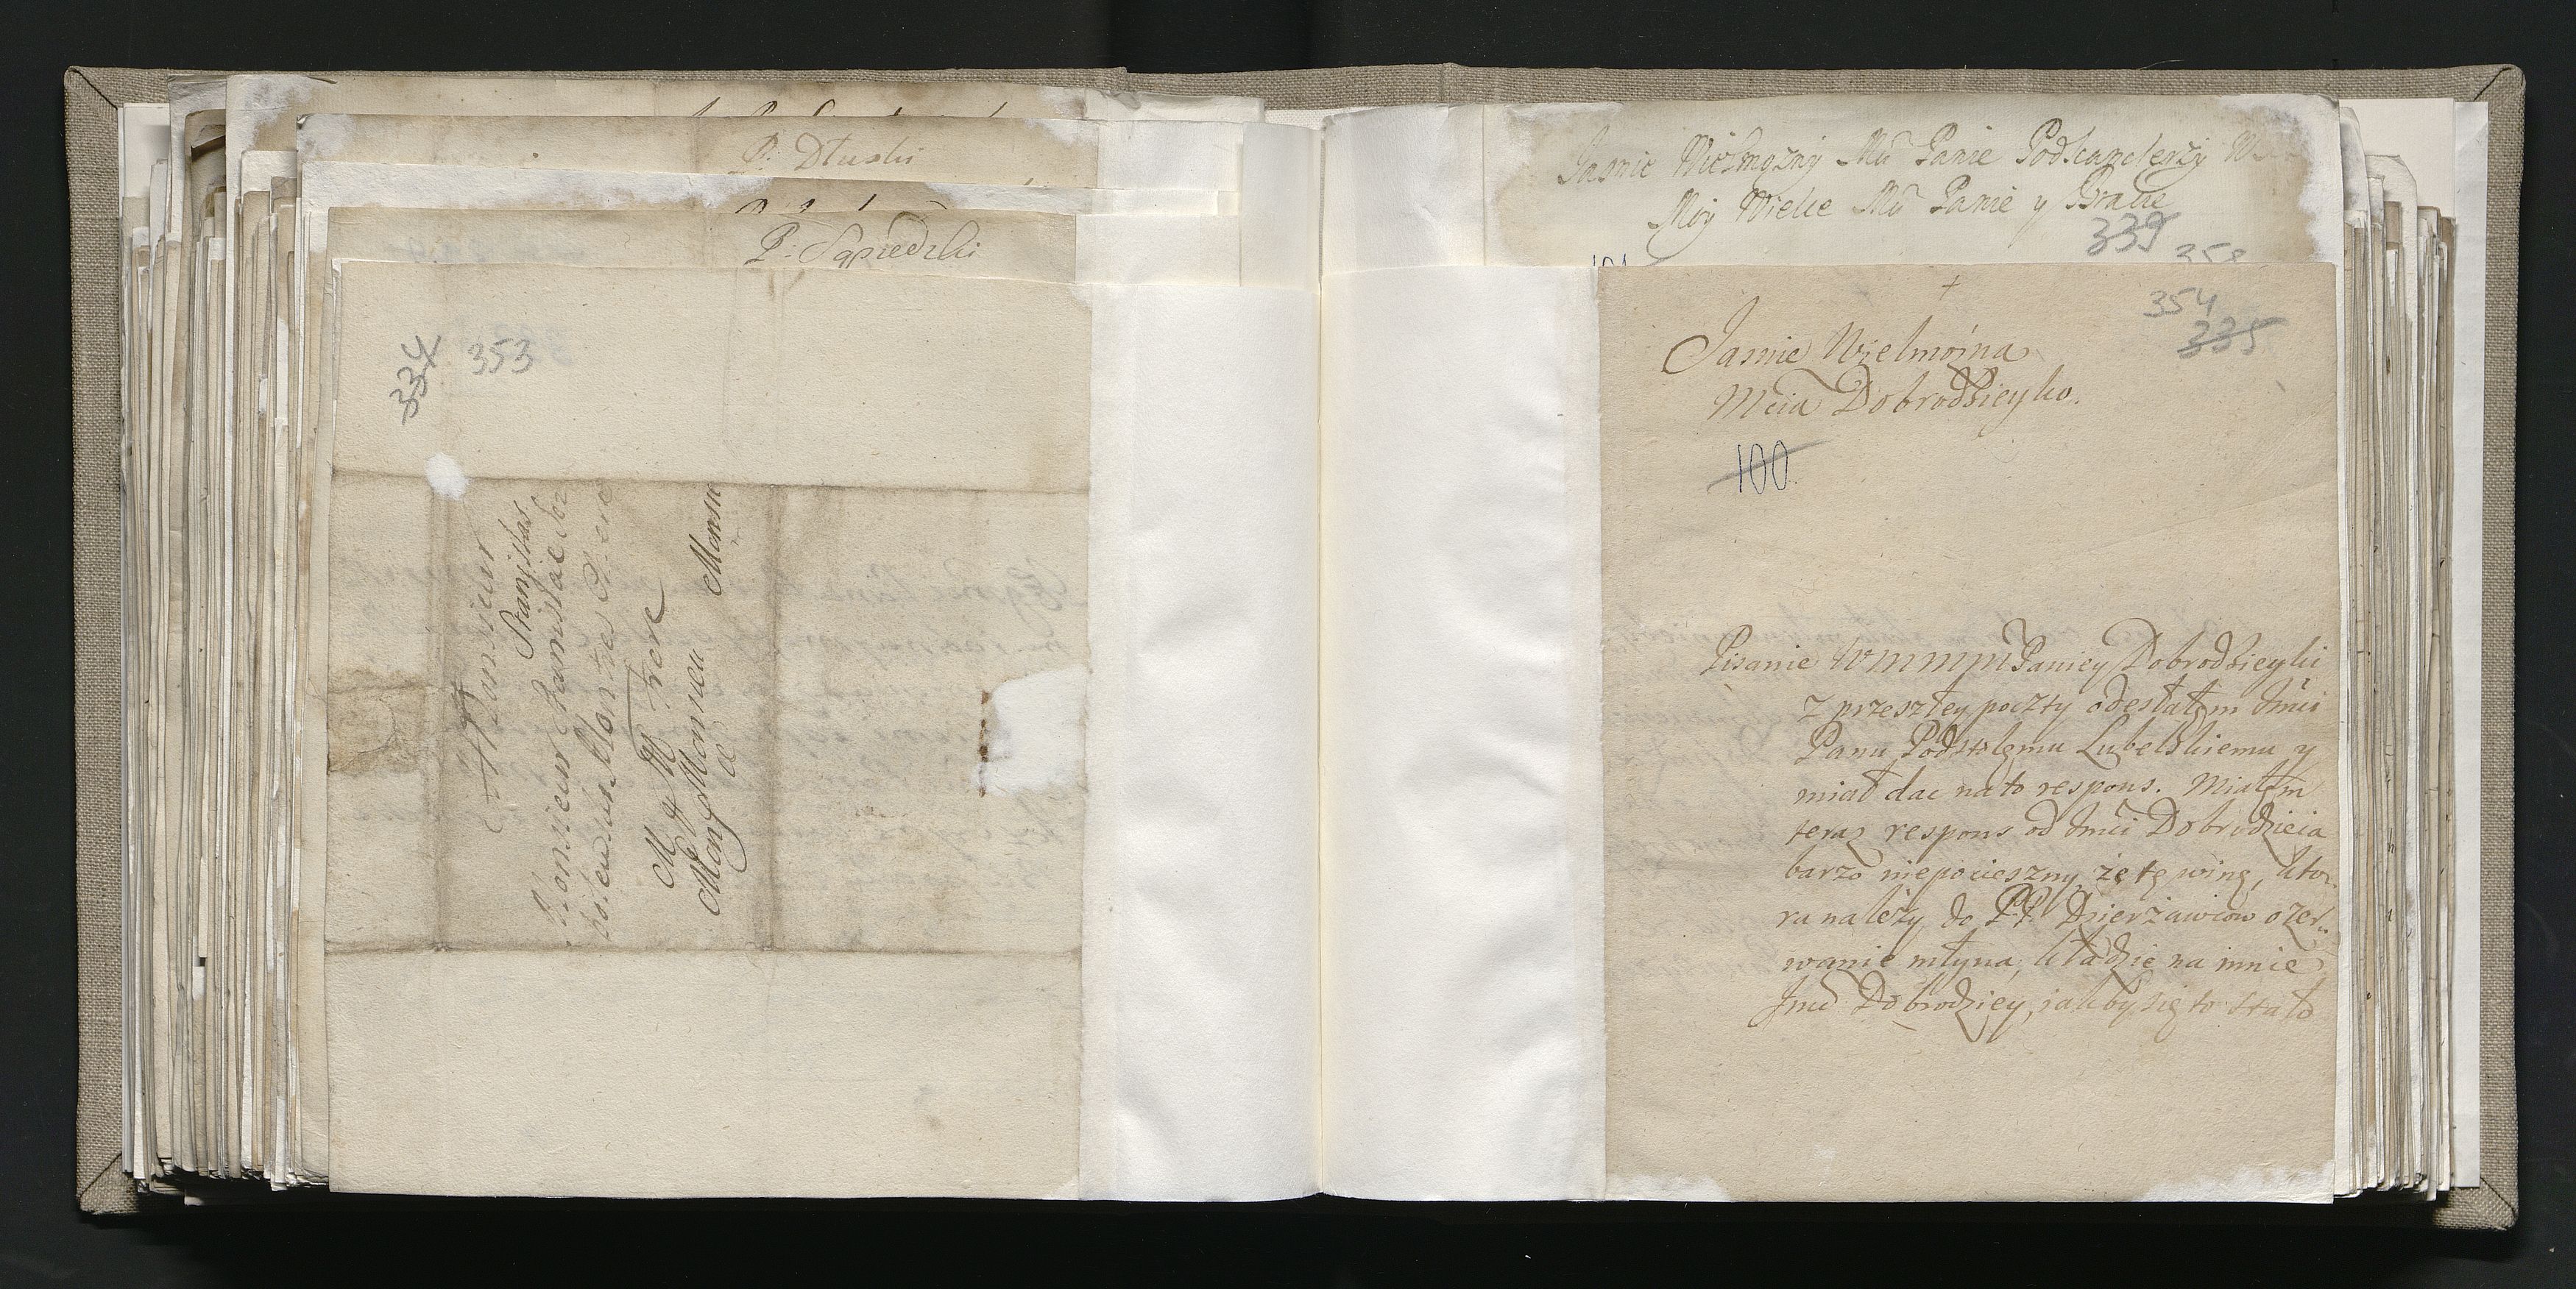 P. Dłuski
P. Sąsiedzki
334 353
Monsieur
Stanislas
Monsieur Stanislas
M y M Frere
Monsieur
Monsieur
a
Jasnie Wielmozny Mći Panie Podkanclerzy
Moy Wielce Mći Panie y Bracie
339
358
101
+
354
335
Jasnie Wielmożna
Mcia Dobrodzieyko.
100.
Pisanie WMMMPaniey Dobrodzieyki
z przeszłey poczty odesłałęm Jmći
Panu Podstolęmu Lubelskiemu y
miał dac na to respons. Miałęm
teraz respons od Jmći Dobrodzieia
barzo niepocieszny, że tę winę, kto-
ra nalezy do PP. Dzierżawcow o zer-
wanie młyna, kładzie na mnie
Jmć Dobrodziey, jakby się to stało